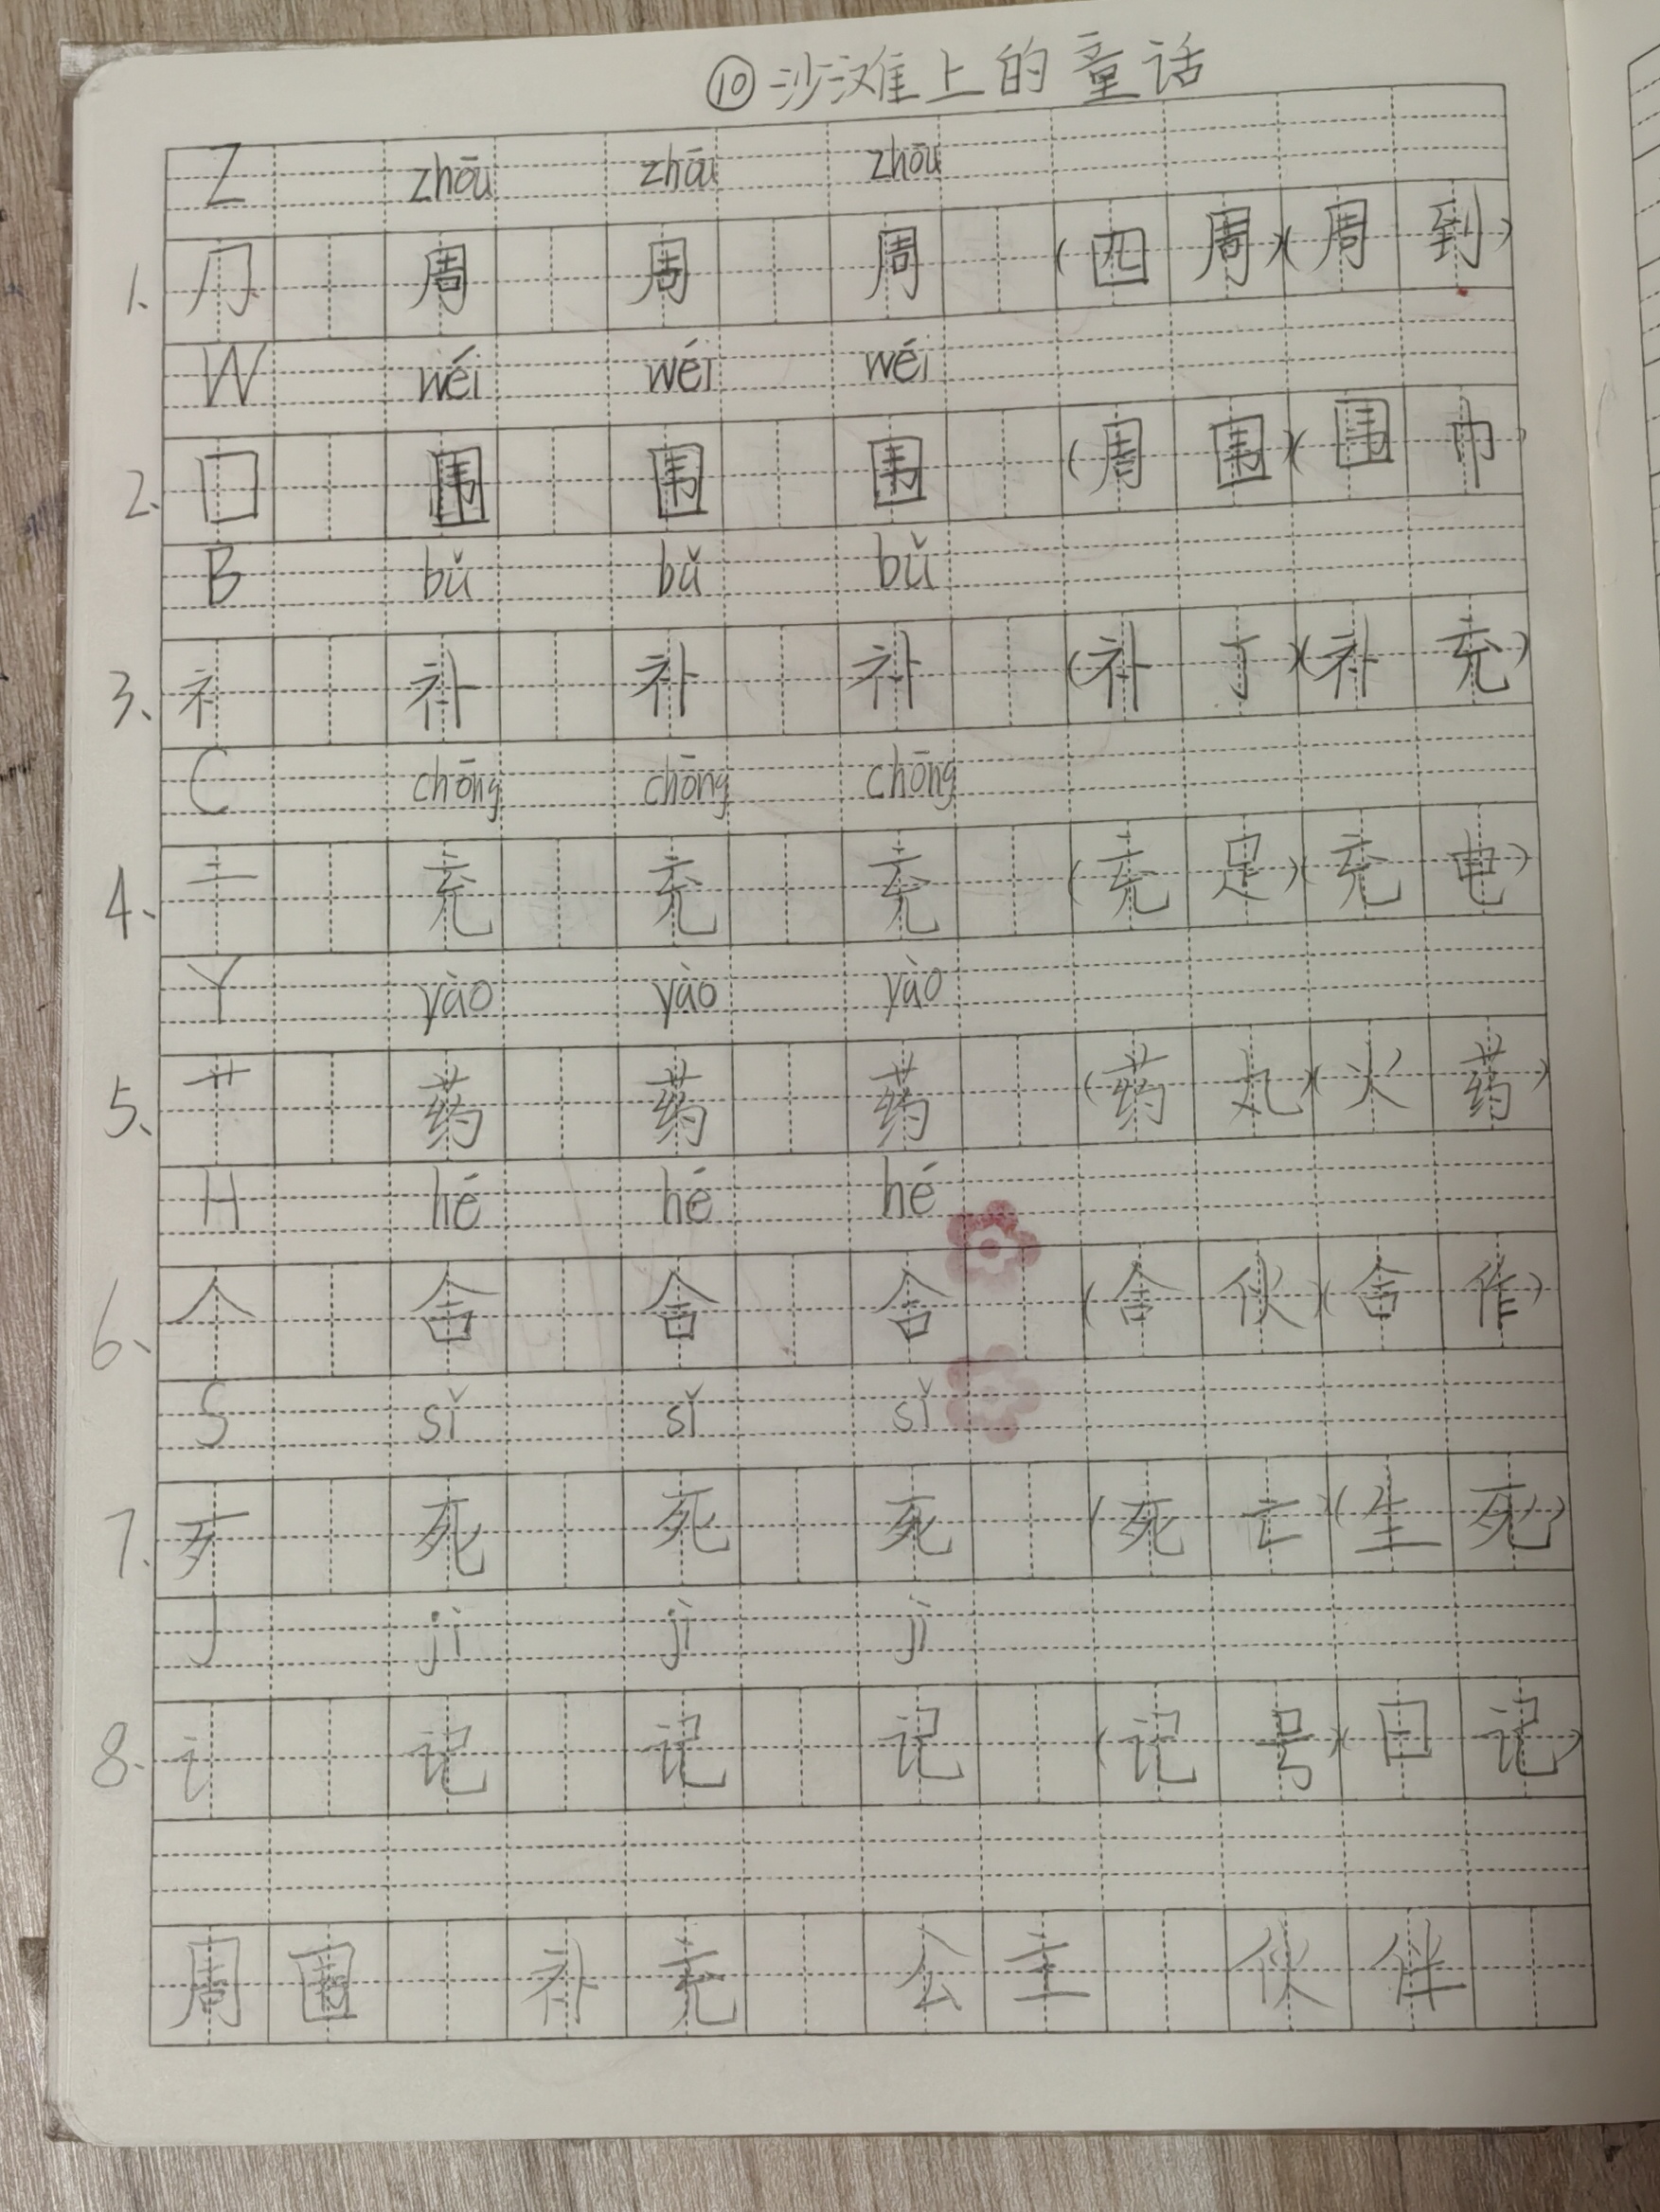 ⑩沙滩上的童话
Z zhōu zhōu zhōu
1、⺆ 周 周 周 (四周)(周到)
W wéi wéi wéi
2、囗 围 围 围 (周围)(围巾)
B bǔ bǔ bǔ
3、衤 补 补 补 (补丁)(补充)
C chōng chōng chōng
4、亠 充 充 充 (充足)(充电)
Y yào yào yào
5、艹 药 药 药 (药丸)(火药)
H hé hé hé
6、人 合 合 合 (合伙)(合作)
S sǐ sǐ sǐ
7、歹 死 死 死 (死亡)(生死)
J jì jì jì
8、讠 记 记 记 (记号)(日记)
周围 补充 公主 伙伴